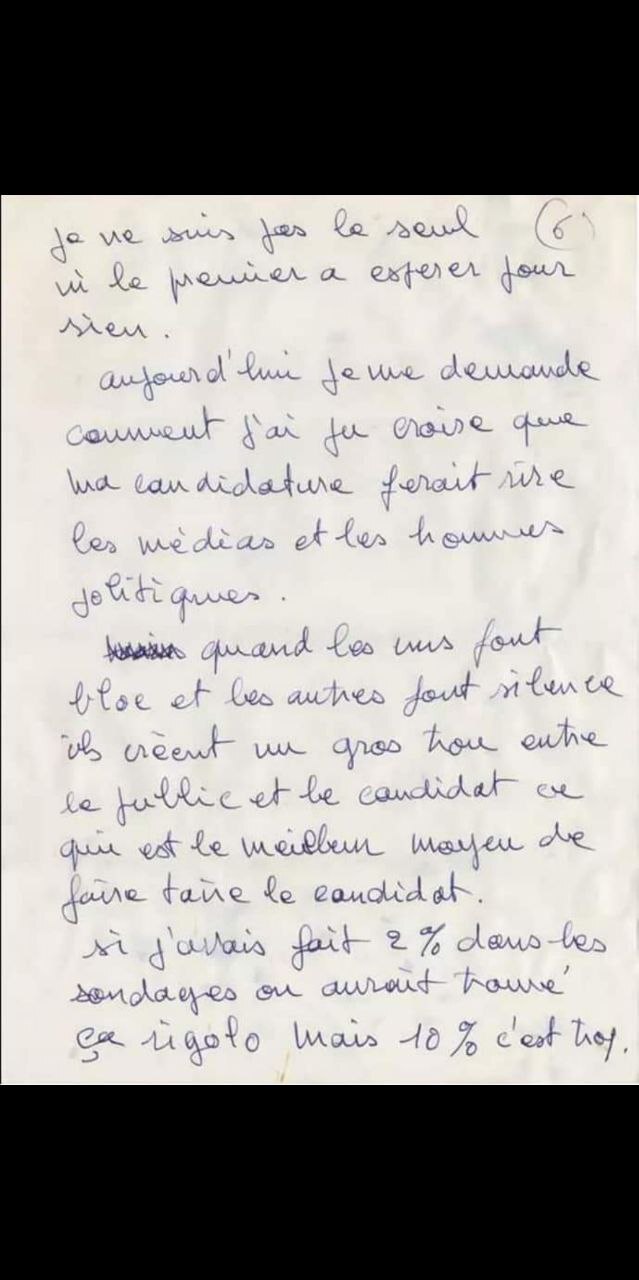 je ne suis pas le seul (6)
ni le premier a esperer pour
rien.
aujourd'hui je me demande
comment j'ai pu croire que
ma candidature ferait rire
les médias et les hommes
politiques.
quand les uns font
bloc et les autres font silence
ils créent un gros trou entre
le public et le candidat ce
qui est le meilleur moyen de
faire taire le candidat.
si j'avais fait 2 % dans les
sondages on aurait trouvé
ça rigolo mais 10 % c'est trop.